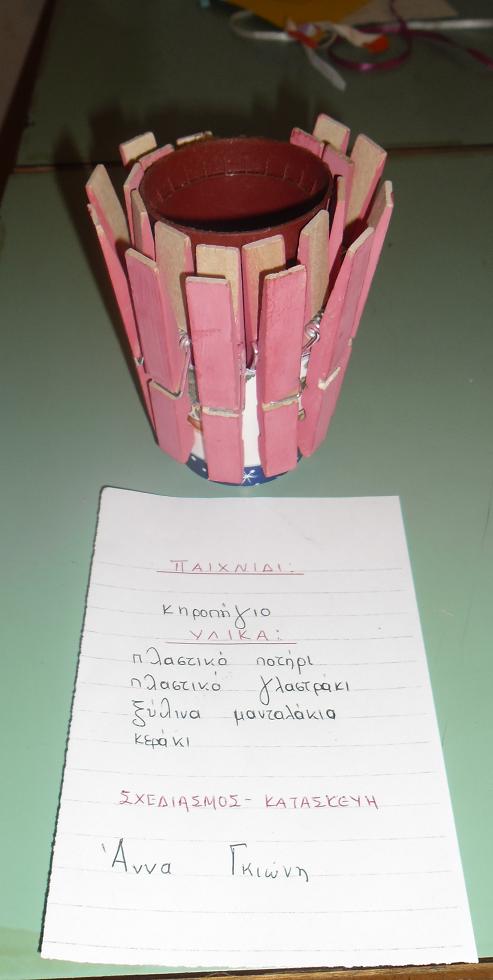 ΠΑΙΧΝΙΔΙ:
κηροπήγιο
ΥΛΙΚΑ:
πλαστικό ποτήρι
πλαστικό γλαστράκι
ξύλινα μανταλάκια
κεράκι
ΣΧΕΔΙΑΣΜΟΣ - ΚΑΤΑΣΚΕΥΗ
Άννα Γκιώνη